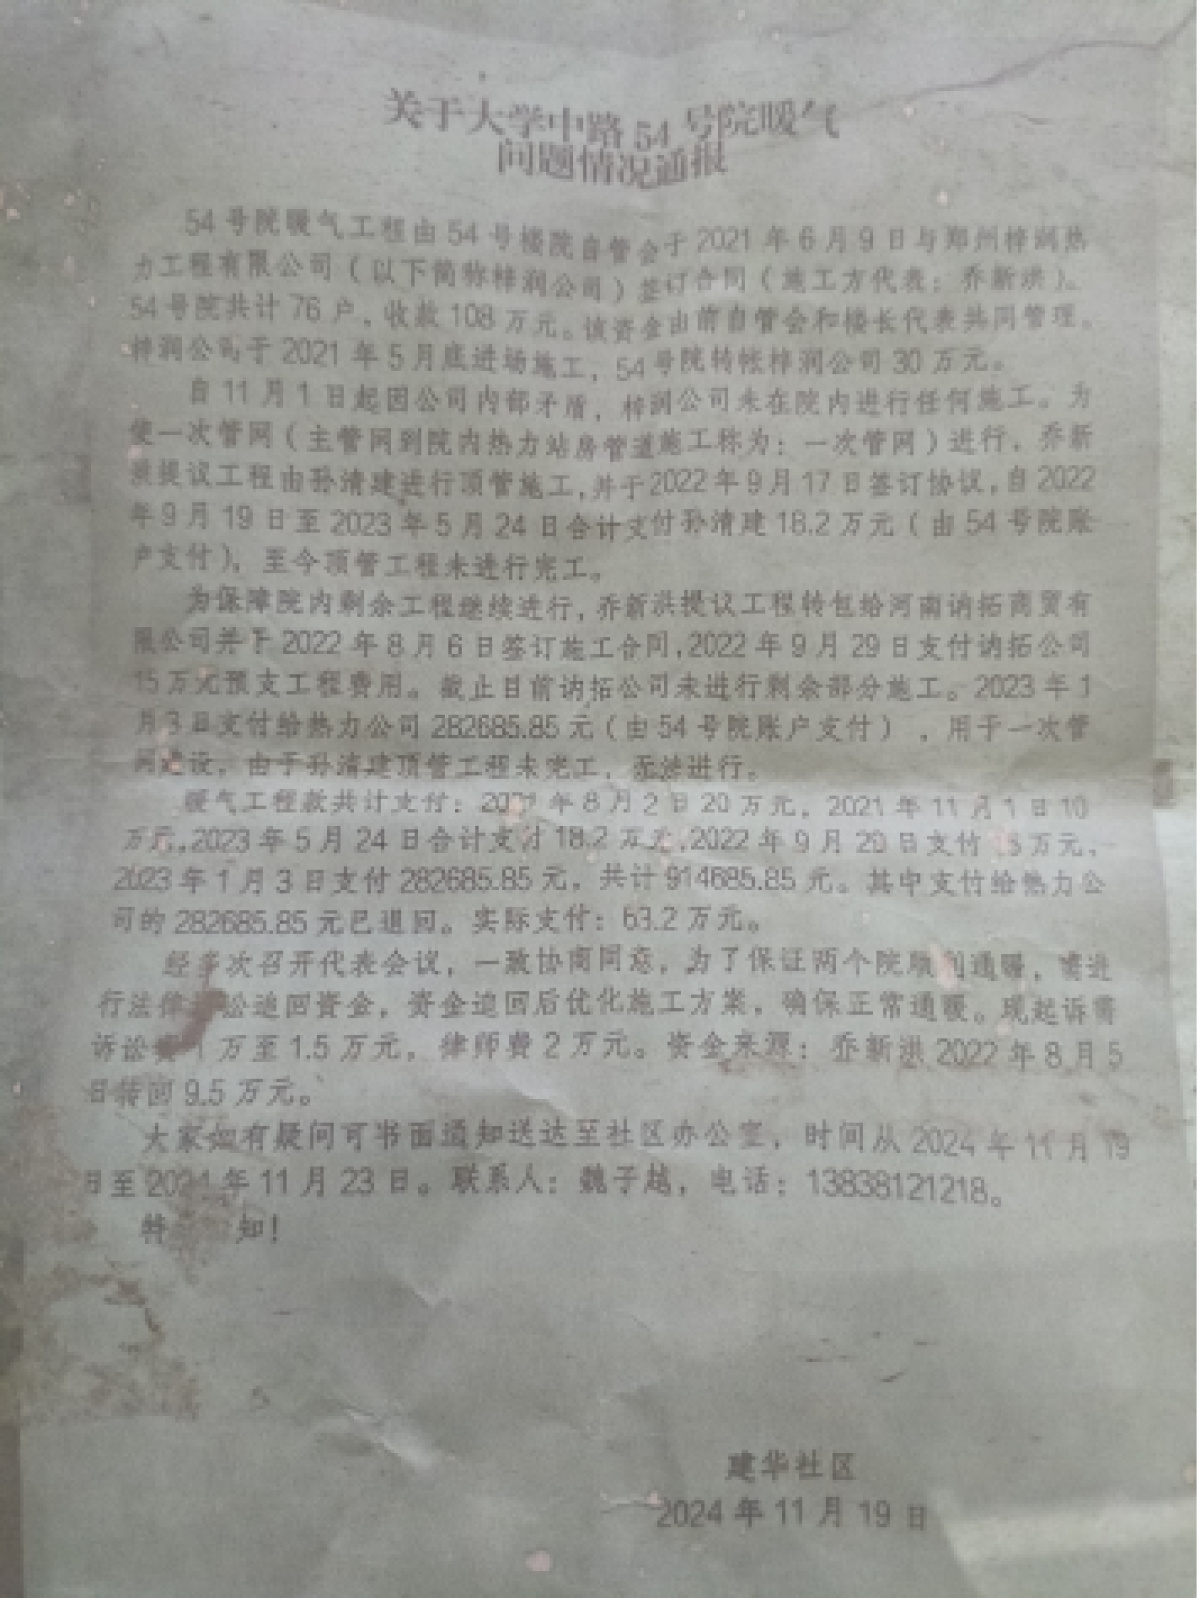 关于大学中路54号院暖气
问题情况通报
54号院暖气工程由54号楼院自管会于2021年6月9日与郑州梓润热
力工程有限公司（以下简称梓润公司）签订合同（施工方代表：乔新洪）。
54号院共计76户，收款108万元。该资金由前自管会和楼长代表共同管理。
梓润公司于2021年5月底进场施工，54号院转帐梓润公司30万元。
自11月1日起因公司内部矛盾，梓润公司未在院内进行任何施工。为
使一次管网（主管网到院内热力站房管道施工称为：一次管网）进行，乔新
洪提议工程由孙清建进行顶管施工，并于2022年9月17日签订协议，自2022
年9月19日至2023年5月24日合计支付孙清建18.2万元（由54号院账
户支付），至今顶管工程未进行完工。
为保障院内剩余工程继续进行，乔新洪提议工程转包给河南讷拓商贸有
限公司并于2022年8月6日签订施工合同，2022年9月29日支付讷拓公司
15万元预支工程费用。截止目前讷拓公司未进行剩余部分施工。2023年1
月3日支付给热力公司282685.85元（由54号院账户支付），用于一次管
网建设，由于孙清建顶管工程未完工，无法进行。
暖气工程款共计支付：2021年8月2日20万元，2021年11月1日10
万元，2023年5月24日合计支付18.2万元，2022年9月29日支付15万元，
2023年1月3日支付282685.85元，共计914685.85元。其中支付给热力公
司的282685.85元已退回。实际支付：63.2万元。
经多次召开代表会议，一致协商同意，为了保证两个院顺利通暖，需进
行法律 讼追回资金，资金追回后优化施工方案，确保正常通暖。现起诉需
诉讼费1万至1.5万元，律师费2万元。资金来源：乔新洪2022年8月5
日转回9.5万元。
大家如有疑问可书面通知送达至社区办公室，时间从2024年11月19
日至2024年11月23日。联系人：魏子越，电话：13838121218。
特 知！
建华社区
2024年11月19日